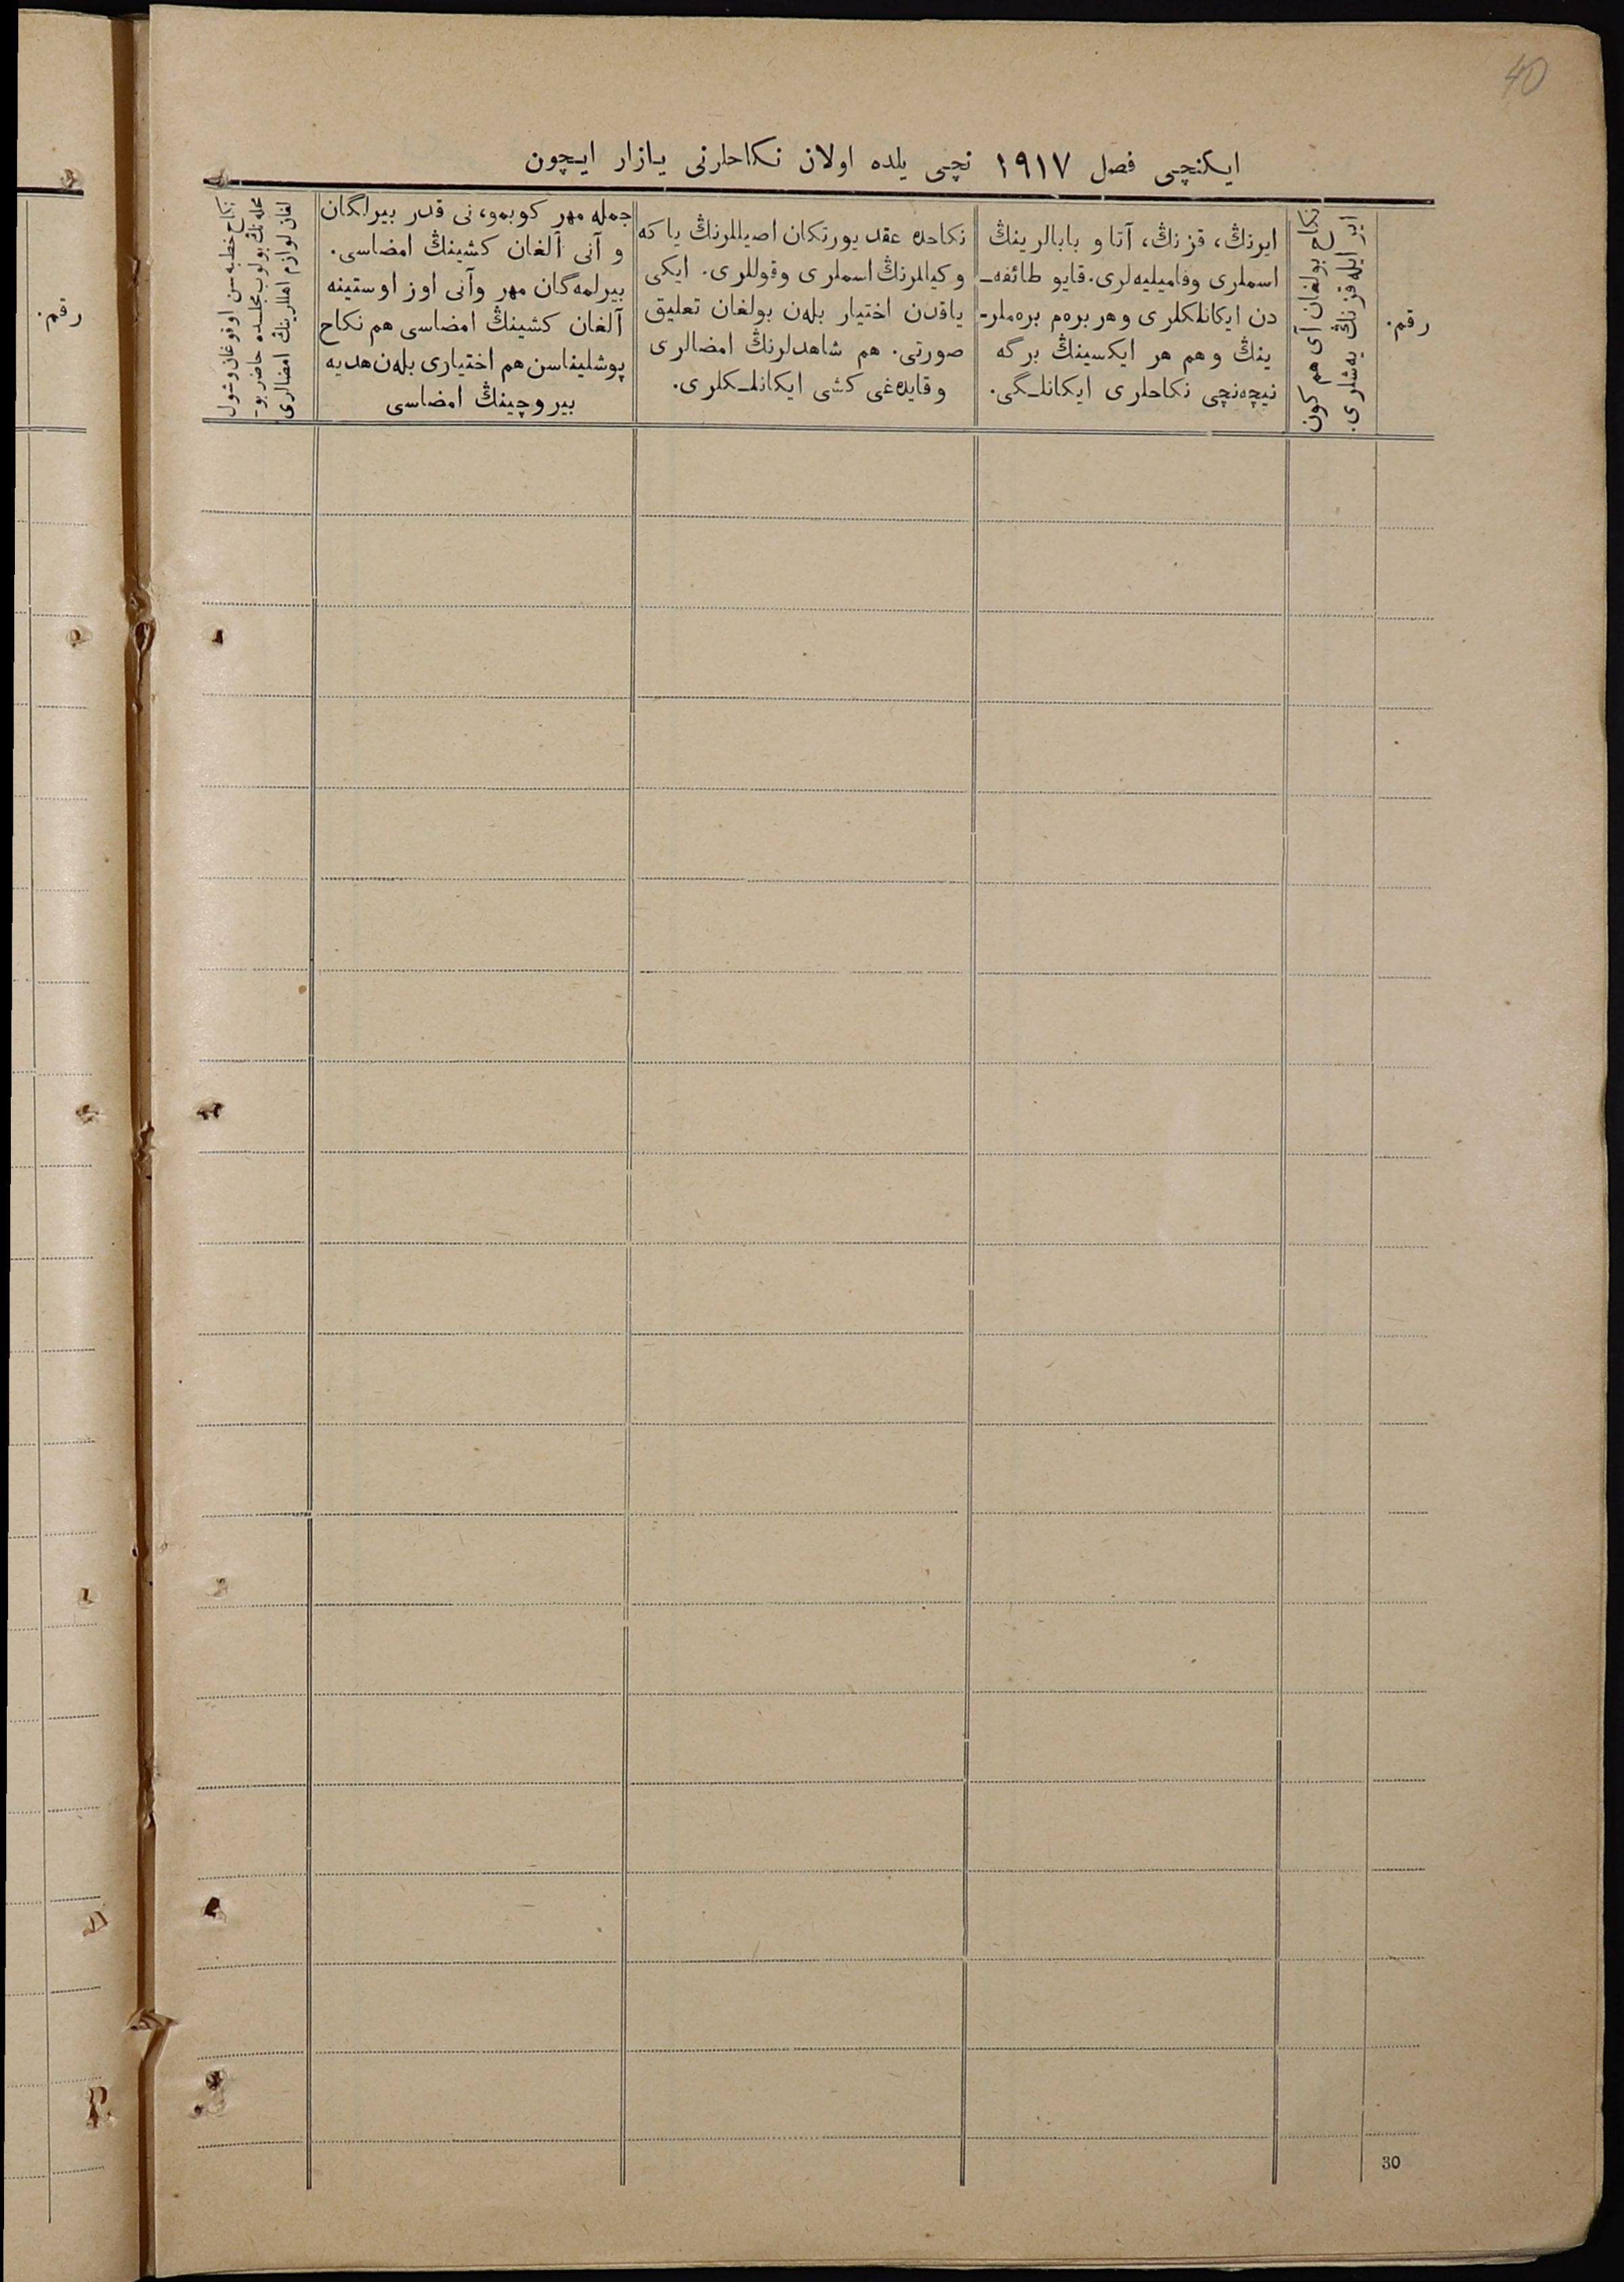 40
ایکنچی فصل ١٩١٧ نچی یلده اولان نکاحلرنی یازار ایچون
رقم.
نکاح بولغان آی هم کون
ایر ایله قزنڭ یه‌شلری.
ایرنڭ، قزنڭ، آتا و بابالرینڭ
اسملری وفامیلیه‌لری. قایو طائفه‌ـ
دن ایکانلکلری وهر بره‌م بره‌ملرـ
ینڭ وهم هر ایکسینڭ برگه
نیچه‌نچی نکاحلری ایکانلـگی.
نکاحده عقد یورتکان اصیللرنڭ یا که
وکیللرنڭ اسملری وقوللری. ایکی
یاقدن اختیار بله‌ن بولغان تعلیق
صورتی. هم شاهدلرنڭ امضالری
وقایده‌غی کشی ایکانلـکلری.
جمله مهر کوبمو، نی قدر بیرلگان
و آنی آلغان کشینڭ امضاسی.
بیرلمه‌گان مهر وآنی اوز اوستینه
آلغان کشینڭ امضاسی هم نکاح
پوشلیناسن هم اختیاری بله‌ن هدیه
بیروچینڭ امضاسی
نکاح خطبه سن اوقوغان وشول
محله‌نڭ بولوب مجلسده حاضر بوـ
لغان لوازم اهللرینڭ امضالری
رقم.
30